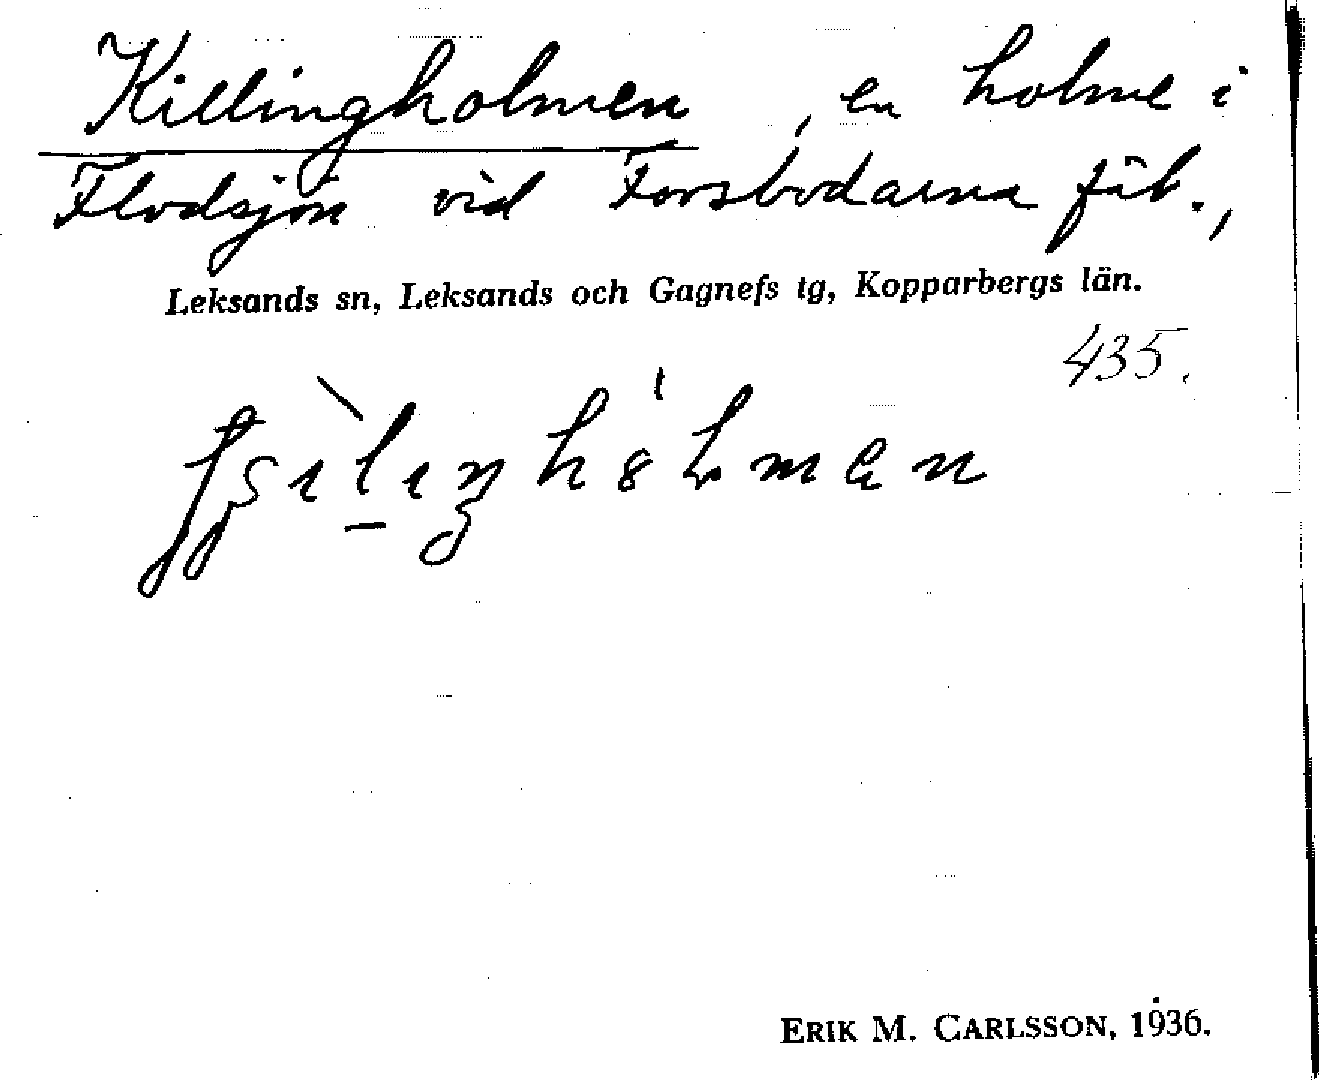 Killingholmen, en holme i
Flodsjön vid Forsbodarna fäb.,
Leksands sn, Leksands och Gagnefs tg, Kopparbergs län.
435.
ERIK M. CARLSSON, 1936.